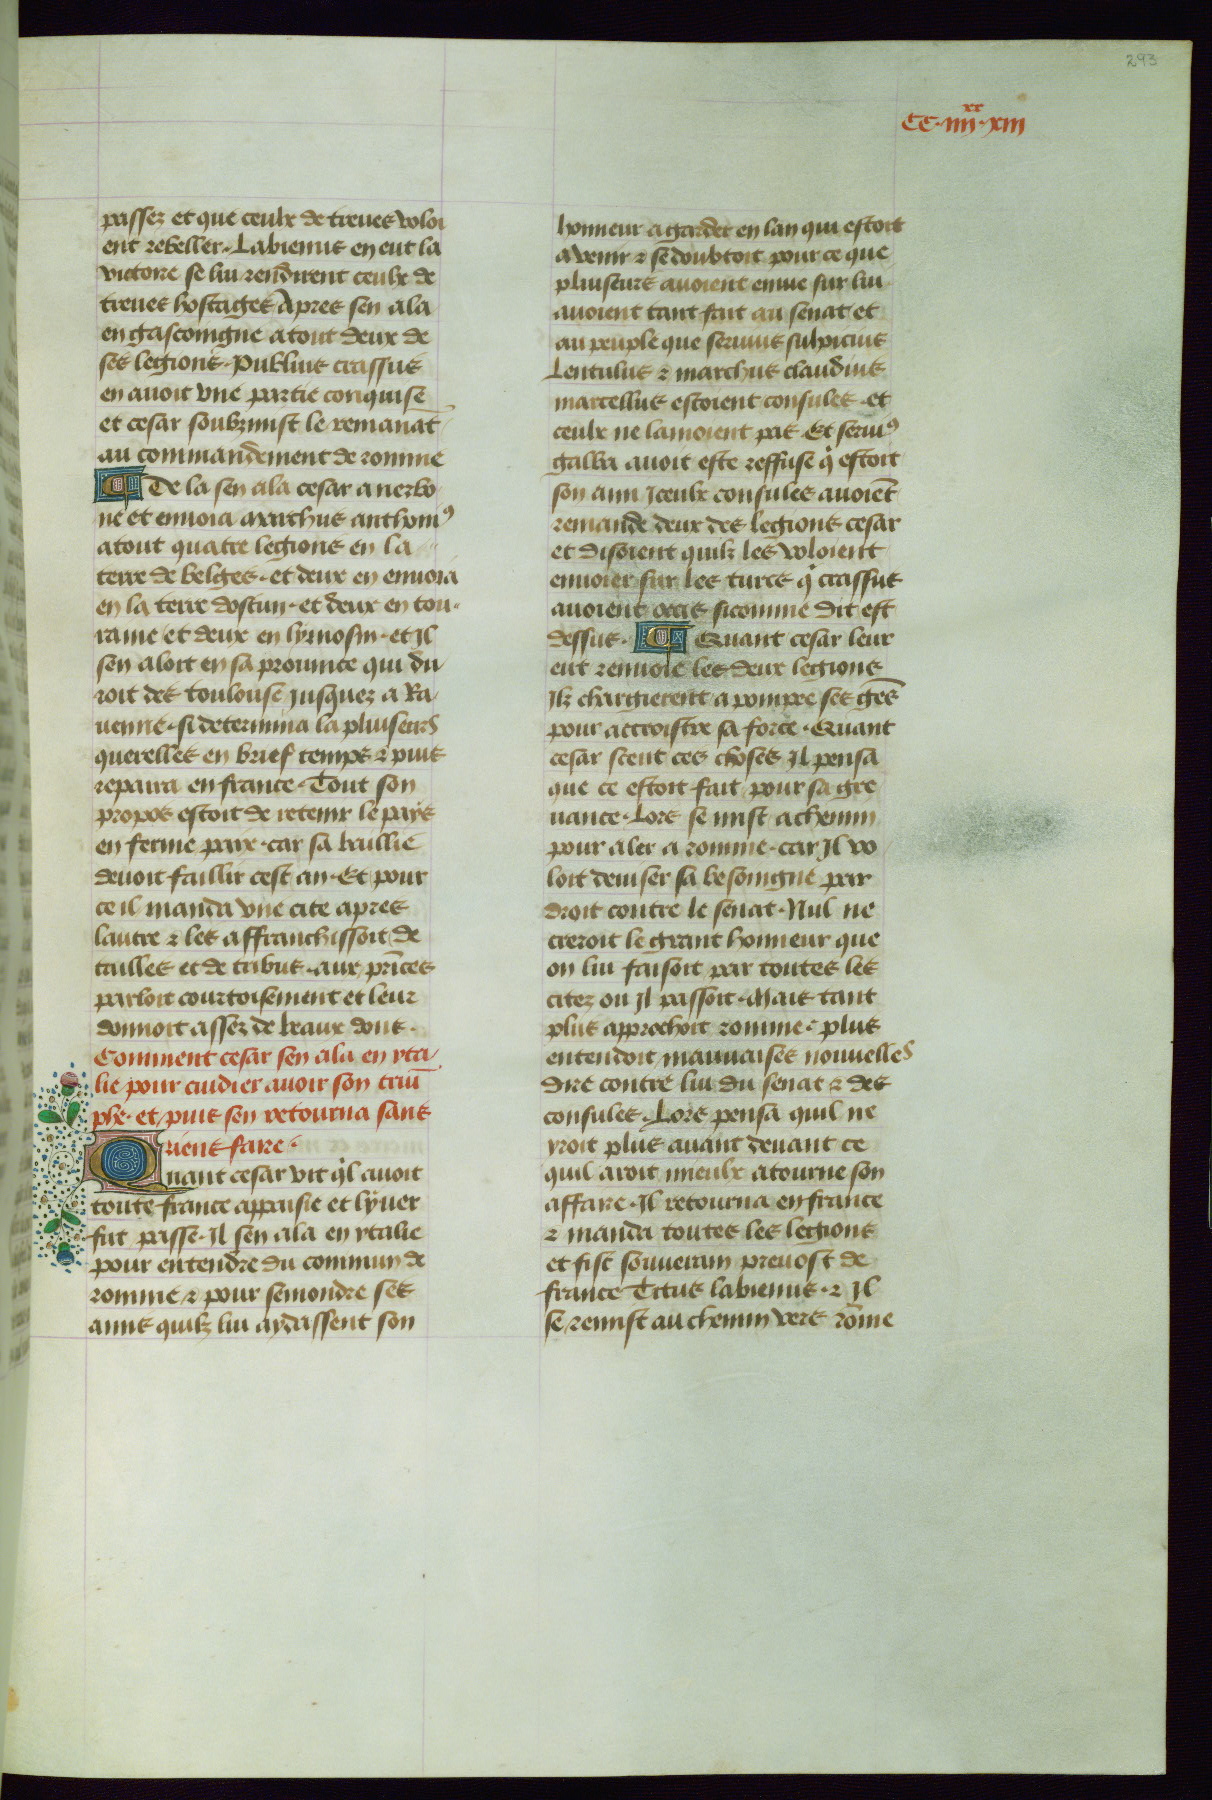 293
CC·iiii xx·xiii
passez et que ceulx de treues voloi
ent rebeller. Labienus en eut la
victoire se lui rendirent ceulx de
treues hostages Apres sen ala
en gascoingne atout deux de
ses legions. Publius crassus
en auoit vne partie conquise
et cesar soubzmist le remanāt
au commandement de romme
De la sen ala cesar a nerbo
ne et enuoia marchus anthoniꝰ
atout quatre legions en la
terre de belges. et deux en enuoia
en la terre dostun. et deux en tou
raine et deux en lymosin. et Il
sen aloit en sa prouince qui du
roit des toulouse jusquez a Ra
uenne. si determina la pluiseurs
querelles en brief temps ⁊ puis
repaira en france. Tout son
propos estoit de retenir le pays
en ferme paix. car sa baillie
deuoit faillir cest an. Et pour
ce il manda vne cite apres
lautre ⁊ les affranchissoit de
tailles et de tribus. aux prīces
parloit courtoisement et leur
donnoit assez de beaux dons.
Comment cesar sen ala en yta
lie pour cuidier auoir son triū
phe. et puis sen retourna sans
riens faire.
Quant cesar vit q̄l auoit
toute france appaisie et lyuer
fut passe. Il sen ala en ytalie
pour entendre du commun de
romme ⁊ pour semondre ses
amis quilz lui aydassent son
honneur a garder en lan qui estoit
a venir ⁊ se doubtoit pour ce que
pluiseurs auoient enuie sur lui
auoient tant fait au senat et
au peuple que seruius sulpicius
Lentulus ⁊ marchus claudius
marcellus estoient consules. et
ceulx ne lamoient pas. Et seruiꝰ
galba auoit este reffuse q̄ estoit
son ami Iceulx consules auoiēt
remande deux des legions cesar
et disoient quilz les voloient
enuoier sur les turcs q̄ crassus
auoient occis sicomme dit est
dessus. Quant cesar leur
eut renuoie les deux legions
Ilz chargierent a pompee ses gēs
pour accroistre sa force. Quant
cesar sceut ces choses Il pensa
que ce estoit fait pour sa gre
uance. Lors se mist a chemin
pour aler a romme. car Il vo
loit deuiser sa besoingne par
droit contre le senat. Nul ne
creroit le grant honneur que
on lui faisoit par toutes les
citez ou Il passoit. Mais tant
plus approchoit romme. plus
entendoit mauuaises nouuelles
dire contre lui du senat ⁊ des
consules. Lors pensa quil ne
yroit plus auant deuant ce
quil aroit mieulx atourne son
affaire. Il retourna en france
⁊ manda toutes les legions
et fist souuerain preuost de
france Titus labienus. ⁊ Il
se remist au chemin vers rōme